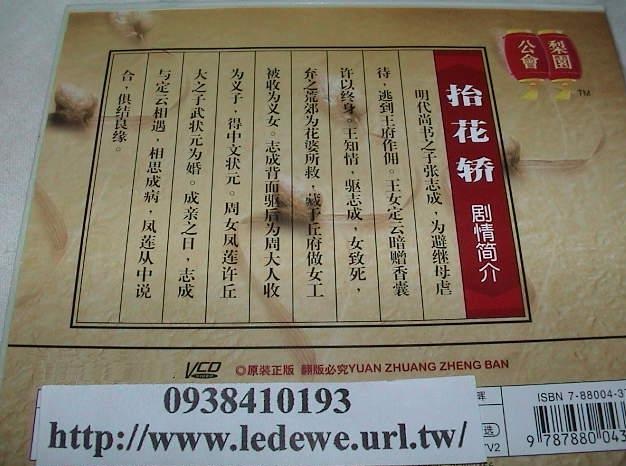 梨園
公會
TM
抬花轿
剧情简介
明代尚书之子张志成，为避继母虐
待，逃到王府作佣。王女定云暗赠香囊
许以终身。王知情，驱志成，女致死，
弃之荒郊为花婆所救，藏于丘府做女工
被收为义女。志成背面驱后为周大人收
为义子，得中文状元。周女凤莲许丘
大之子武状元为婚。成亲之日，志成
与定云相遇，相思成病，凤莲从中说
合，俱结良缘。
VCD
VIDEO
◎原裝正版 翻版必究YUAN ZHUANG ZHENG BAN
0938410193
http://www.ledewe.url.tw/
ISBN 7-88004-37
9 787880 043